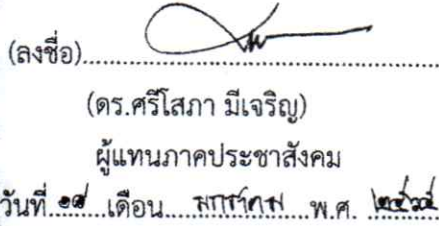 (ลงชื่อ)
(ดร.ศรีโสภา มีเจริญ)
ผู้แทนภาคประชาสังคม
วันที่ ๑๘ เดือน มกราคม พ.ศ. ๒๕๖๕